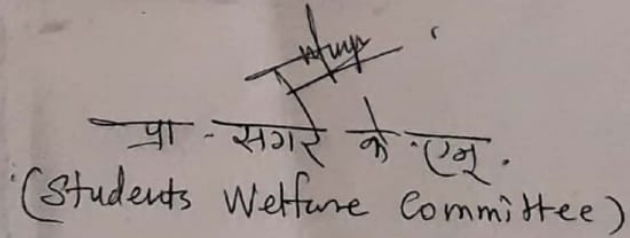 प्रा - सगरे के. एन्.
(Students Welfare Committee)